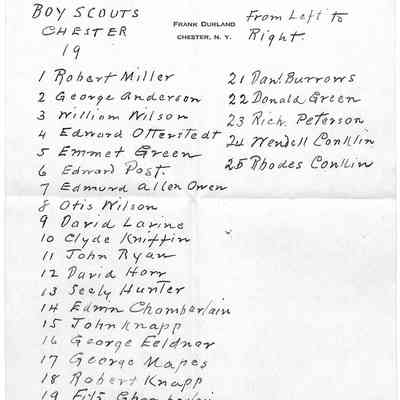 BOY SCOUTS
CHESTER
19
FRANK DURLAND
CHESTER, N. Y.
From Left to
Right.
1 Robert Miller
2 George Anderson
3 William Wilson
4 Edward Otterstedt
5 Emmet Green
6 Edward Post.
7 Edmund Allen Owen
8 Otis Wilson
9 David Larine
10 Clyde Kniffin
11 John Ryan
12 David Horr
13 Seely Hunter
14 Edwin Chamberlain
15 John Knapp
16 George Feldner
17 George Mapes
18 Robert Knapp
19
21 Danl. Burrows
22 Donald Green
23 Rich. Peterson
24 Wendell Conklin
25 Rhodes Conklin